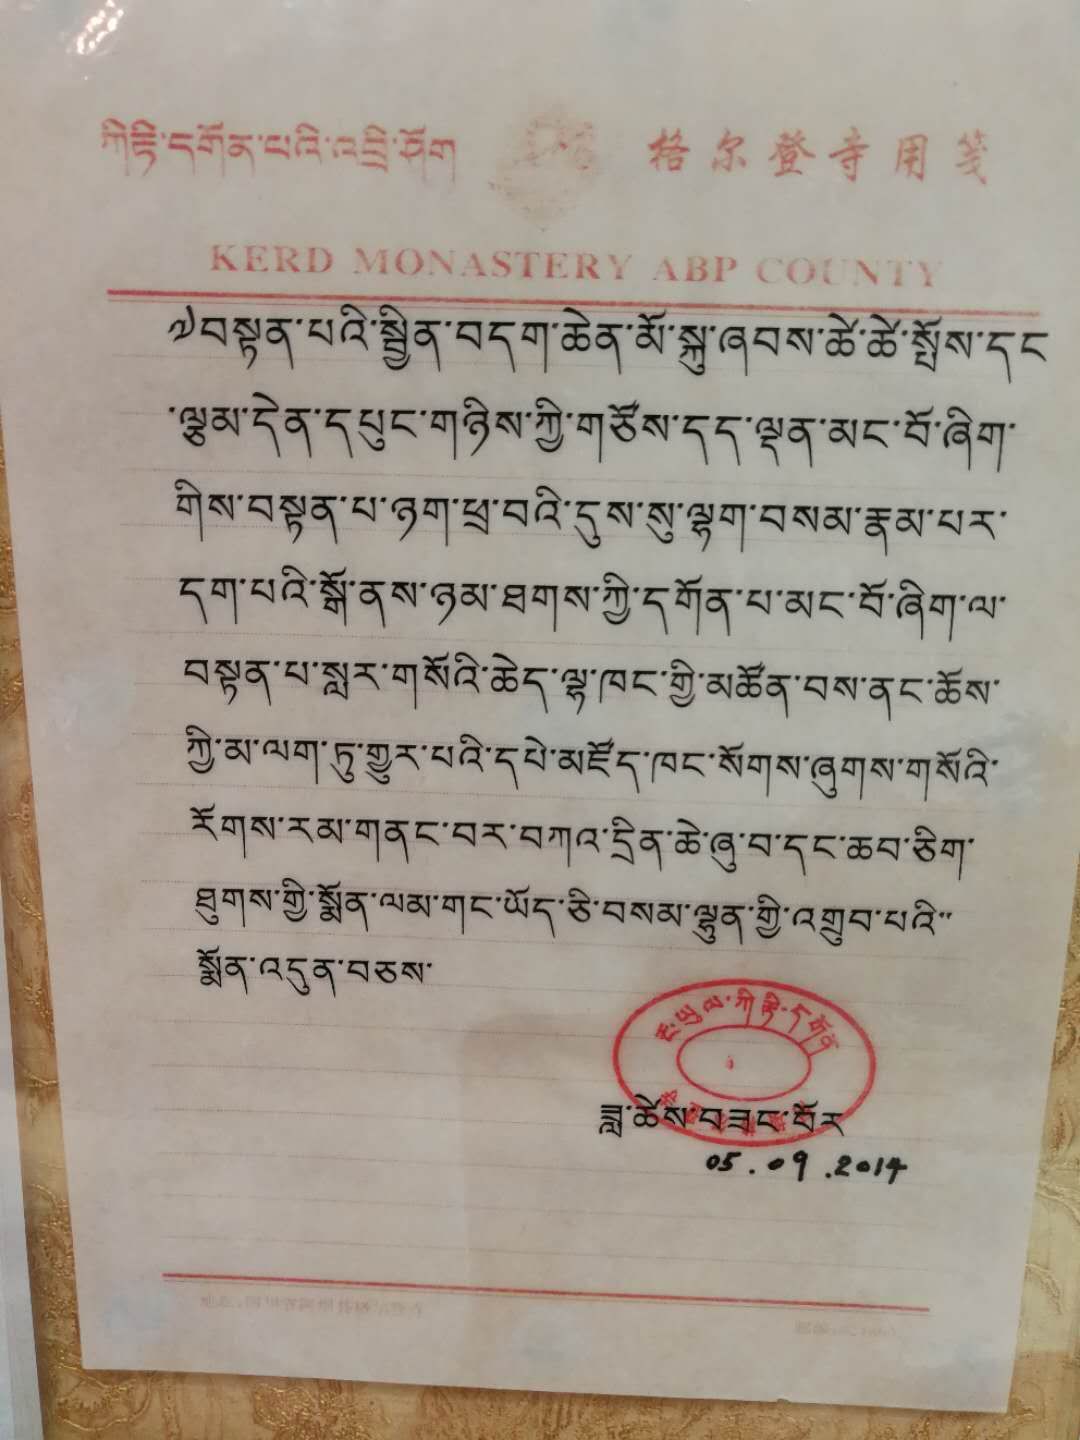 ཀིརྟི་དགོན་པའི་འབྲི་ཤོག
格尔登寺用笺
KERD MONASTERY ABP COUNTY
༡༽བསྟན་པའི་སྦྱིན་བདག་ཆེན་མོ་སྐུ་ཞབས་ཚེ་ཚེ་སྤོས་དང
་ལྕམ་དེན་དཔུང་གཉིས་ཀྱི་གཙོས་དད་ལྡན་མང་པོ་ཞིག་
གིས་བསྟན་པ་ཉག་ཕྲ་བའི་དུས་སུ་ལྷག་བསམ་རྣམ་པར་
དག་པའི་སྒོ་ནས་ཉམ་ཐགས་ཀྱི་དགོན་པ་མང་པོ་ཞིག་ལ་
བསྟན་པ་སླར་གསོའི་ཆེད་ལྷ་ཁང་གྱི་མཚོན་བས་ནང་ཆོས་
ཀྱི་མ་ལག་ཏུ་གྱུར་པའི་དཔེ་མཛོད་ཁང་སོགས་ཞུགས་གསོའི་
རོགས་རམ་གནང་བར་བཀའ་དྲིན་ཆེ་ཞུ་བ་དང་ཆབ་ཅིག་
ཐུགས་གྱི་སྨོན་ལམ་གང་ཡོད་ཅི་བསམ་ལྷུན་གྱི་འགྲུབ་པའི་
སྨོན་འདུན་བཅས་
རྔ་ཡུལ་ཀིརྟི་དགོན
ཟླ་ཚེས་བཟང་པོར
05.09.2014